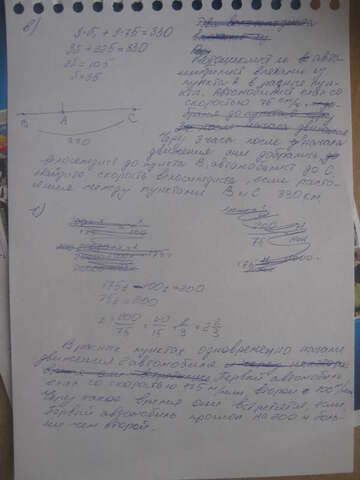 в) 3·x + 3·75 = 330
3x + 225 = 330
3x = 105
x = 35
Велосипедист и авто
мобилист выехали из
пункта А в разные пун-
кта. Автомобилист ехал со
скоростью 75 км/ч,
B A C
330
Через 3 часа после начала
движения они добрались
велосипедист до пункта B, автомобилист до C.
Найдите скорость велосипедиста, если расс-
ояние между пунктами B и C 330 км
г)
75
175t - 100t = 200
75t = 200
t = 200/75 = 40/15 = 8/3 = 2 2/3
В разных пунктах одновременно начали
движения 2 автомобиля
Первый автомобиль
ехал со скоростью 175 км/ч, второй с 100 км/ч
Через какое время они встретятся, если
первый автомобиль прошел на 200 м боль-
ше чем второй.